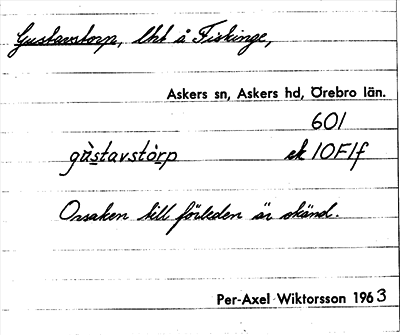 Gustavstorp, lht å Fiskinge,
Askers sn, Askers hd, Örebro län.
601
gùstavstòrp ek 10F1f
Orsaken till förleden är okänd.
Per-Axel Wiktorsson 1963